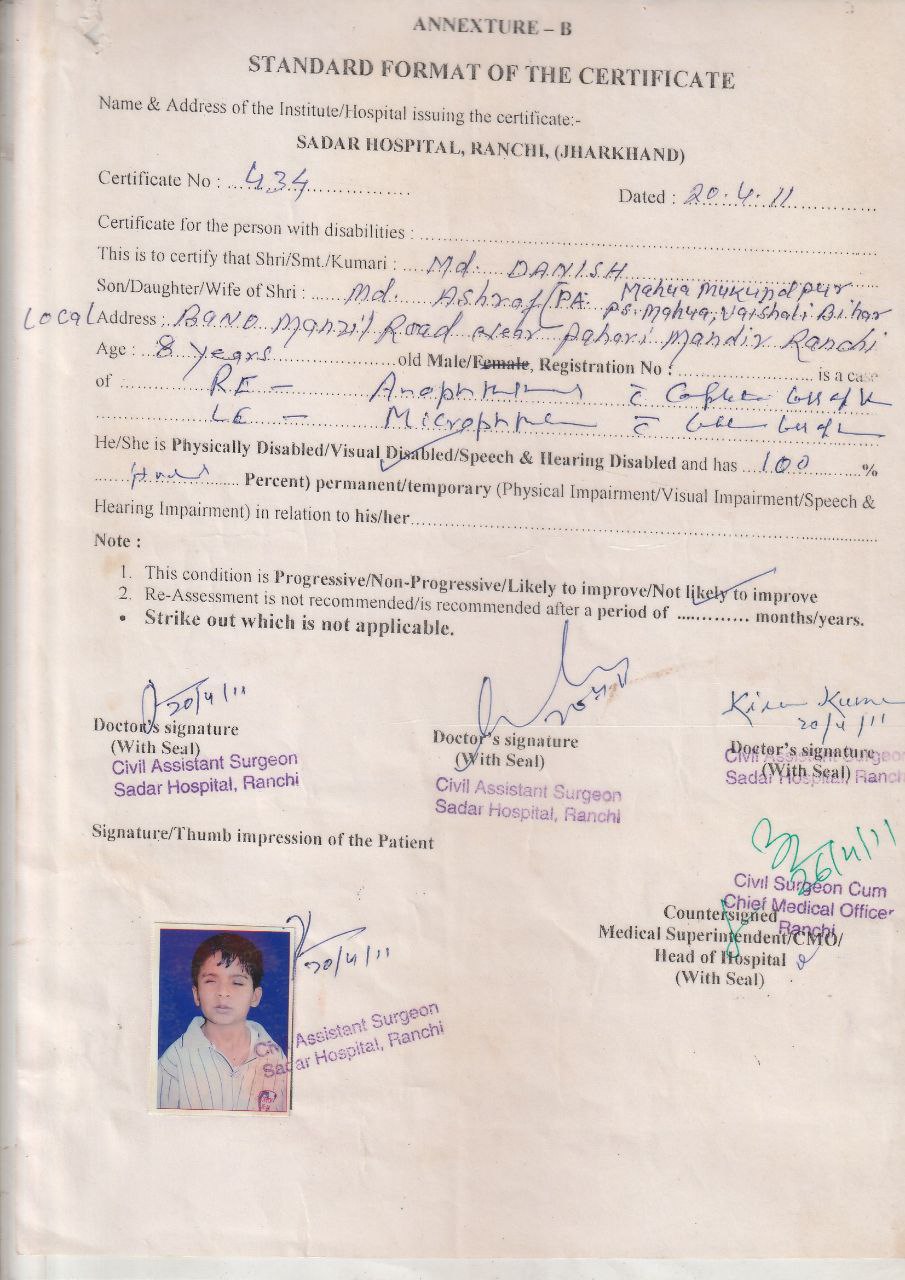 ANNEXTURE – B
STANDARD FORMAT OF THE CERTIFICATE
Name & Address of the Institute/Hospital issuing the certificate:-
SADAR HOSPITAL, RANCHI, (JHARKHAND)
Certificate No : 434 Dated : 20.4.11
Certificate for the person with disabilities :
This is to certify that Shri/Smt./Kumari : Md. DANISH
Son/Daughter/Wife of Shri : Md. Ashraf (PA. Mahua Mukundpur
PS. Mahua, Vaishali Bihar
Local Address : BANO Manzil Road near Pahari Mandir Ranchi
Age : 8 years old Male/Female, Registration No : is a case
of : RE –
LE –
He/She is Physically Disabled/Visual Disabled/Speech & Hearing Disabled and has 100 %
Percent) permanent/temporary (Physical Impairment/Visual Impairment/Speech &
Hearing Impairment) in relation to his/her
Note :
1. This condition is Progressive/Non-Progressive/Likely to improve/Not likely to improve
2. Re-Assessment is not recommended/is recommended after a period of ............ months/years.
• Strike out which is not applicable.
20/4/11
Kiran
20/4/11
Doctor's signature Doctor's signature Doctor's signature
(With Seal) (With Seal) (With Seal)
Civil Assistant Surgeon Civil Assistant Surgeon Civil Assistant Surgeon
Sadar Hospital, Ranchi Sadar Hospital, Ranchi Sadar Hospital, Ranchi
Signature/Thumb impression of the Patient
26/4/11
Civil Surgeon Cum
Chief Medical Officer
Ranchi
Countersigned
Medical Superintendent/CMO/
Head of Hospital
(With Seal)
20/4/11
Civil Assistant Surgeon
Sadar Hospital, Ranchi